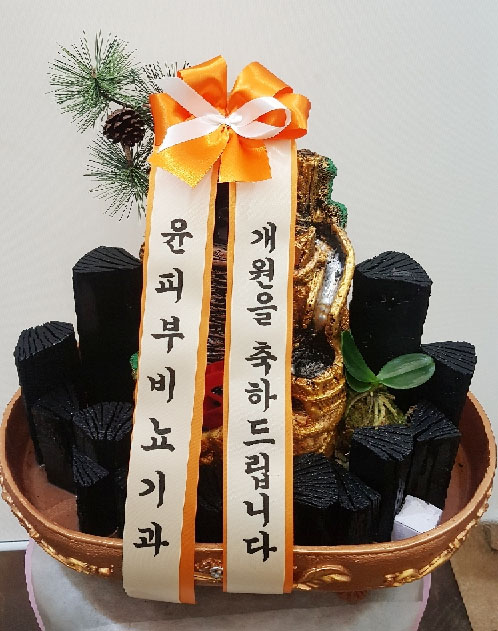 윤피부비뇨기과
개원을 축하드립니다